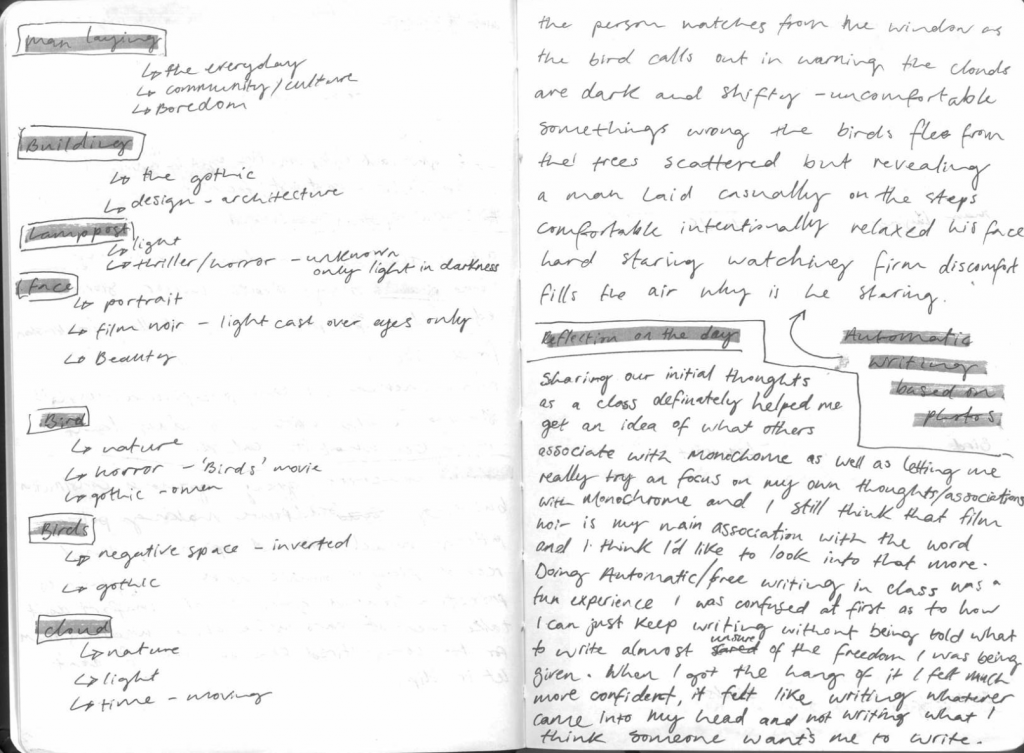 Man laying
↳ the everyday
↳ community/culture
↳ Boredom
Building
↳ the gothic
↳ design - architecture
Lamppost
↳ light
↳ thriller/horror - unknown
only light in darkness
face
↳ portrait
↳ film noir - light cast over eyes only
↳ Beauty
Bird
↳ nature
↳ horror - 'Birds' movie
↳ gothic - omen
Birds
↳ negative space - inverted
↳ gothic
cloud
↳ nature
↳ light
↳ time - moving
the person watches from the window as
the bird calls out in warning the clouds
are dark and shifty - uncomfortable
somethings wrong the birds flee from
the trees scattered but revealing
a man laid casually on the steps
comfortable intentionally relaxed his face
hard staring watching firm discomfort
fills the air why is he staring.
Automatic
writing
based on
photos
Reflection on the day
Sharing our initial thoughts
as a class definately helped me
get an idea of what others
associate with monochome as well as letting me
really try an focus on my own thoughts/associations
with monochrome and I still think that film
noir is my main association with the word
and I think I'd like to look into that more.
Doing Automatic/free writing in class was a
fun experience I was confused at first as to how
I can just keep writing without being told what
to write almost unsure of the freedom I was being
given. When I got the hang of it I felt much
more confident, it felt like writing whatever
came into my head and not writing what I
think someone want's me to write.